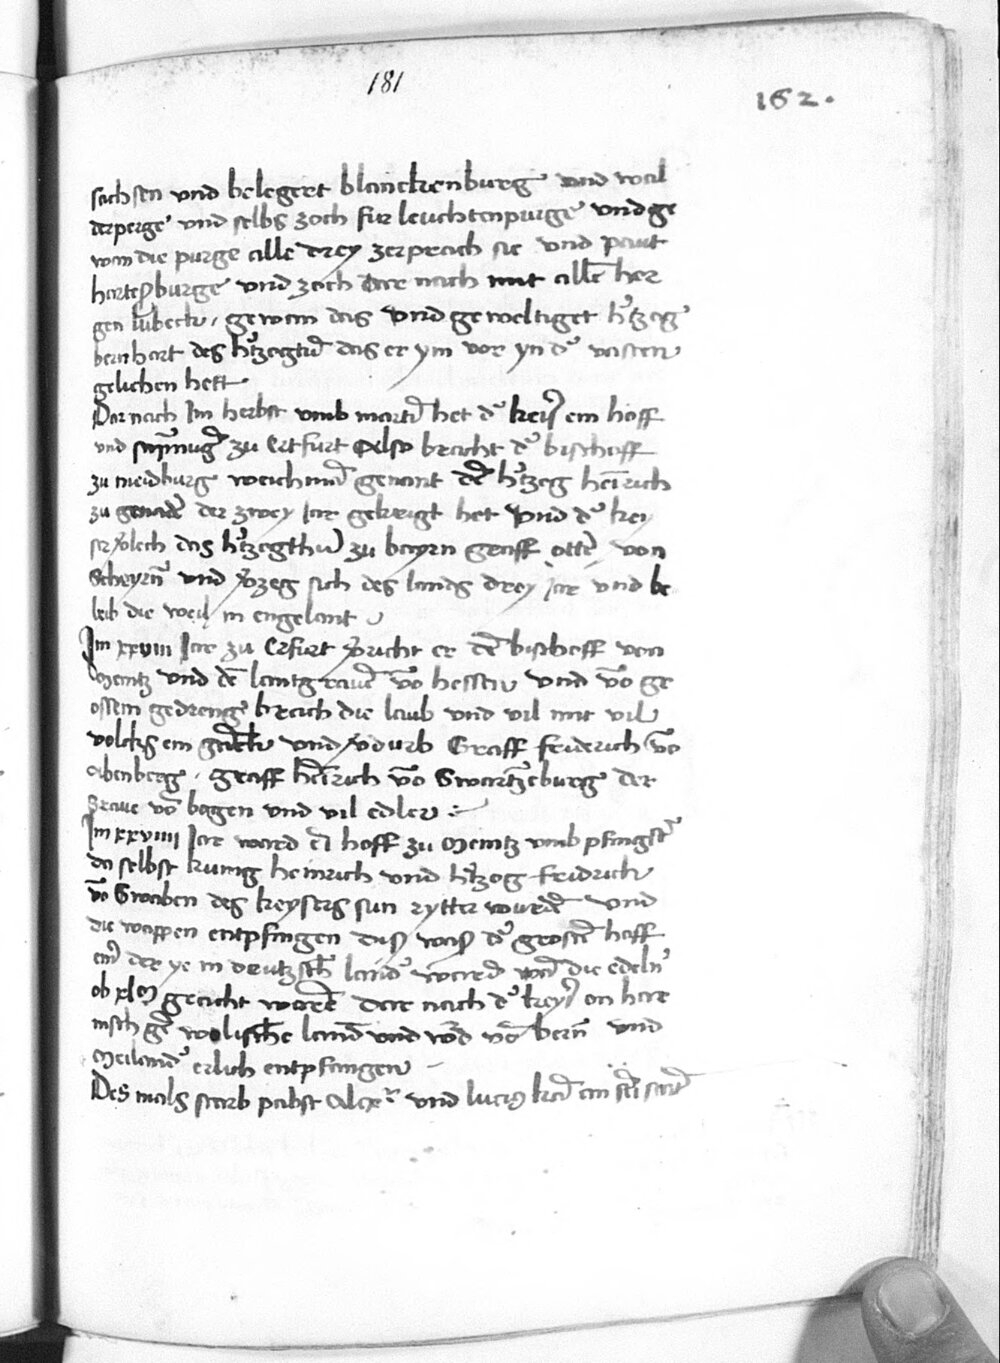 181
162.
sachsen und belegert blanckenburg und wal
derperge und selbs zoch fur leuchtenpurge und ge
wan die purge alle drey zerprach sie und paut
hartesburge und zoch dar nach mit alle her
gen lubeck, gewan das und geweltiget htzog
bernhart des htzogtu das er ym vor yn d vasten
gelichen hett
Dar nach Im herbst umb marti het d keis ein hoff
und zu Ertfurt Also bracht d bischoff
zu meidburg weichma genant de htzog heinrich
zu genade der zwey Jar gekrigt het Und d key
ser vlech das htzogthu zu bayrn graff otte von
Scheyrn und vzeg sich des lands drey Jar und be
leib die weil in engelant
Im xxviii Jar zu Erfurt vricht er de bischoff von
Mentz und de lantgrave vo hessen und vo ge
ossem gedrenge brach die laub und vil mit vil
volcks ein und vdurb Graff friderich vo
Abenberg, graff heinrich vo Swartzeburg der
Grave vo bagen und vil edler
Im xxviiii Jar ward ei hoff zu Mentz umb pfingste
da selbst kunig heinrich und htzog fridrich
vo Swaben des keysers sun rytter wurde und
die wappen entpfingen das was d groste hoff
ein der ye in deutzsch land ward wa die edeln
ob xl M geacht ware dar nach d keys on har
nisch ge welische land und wd vo bern und
Meiland erlich entpfangen
Des mals starb pabst Alex und lucius